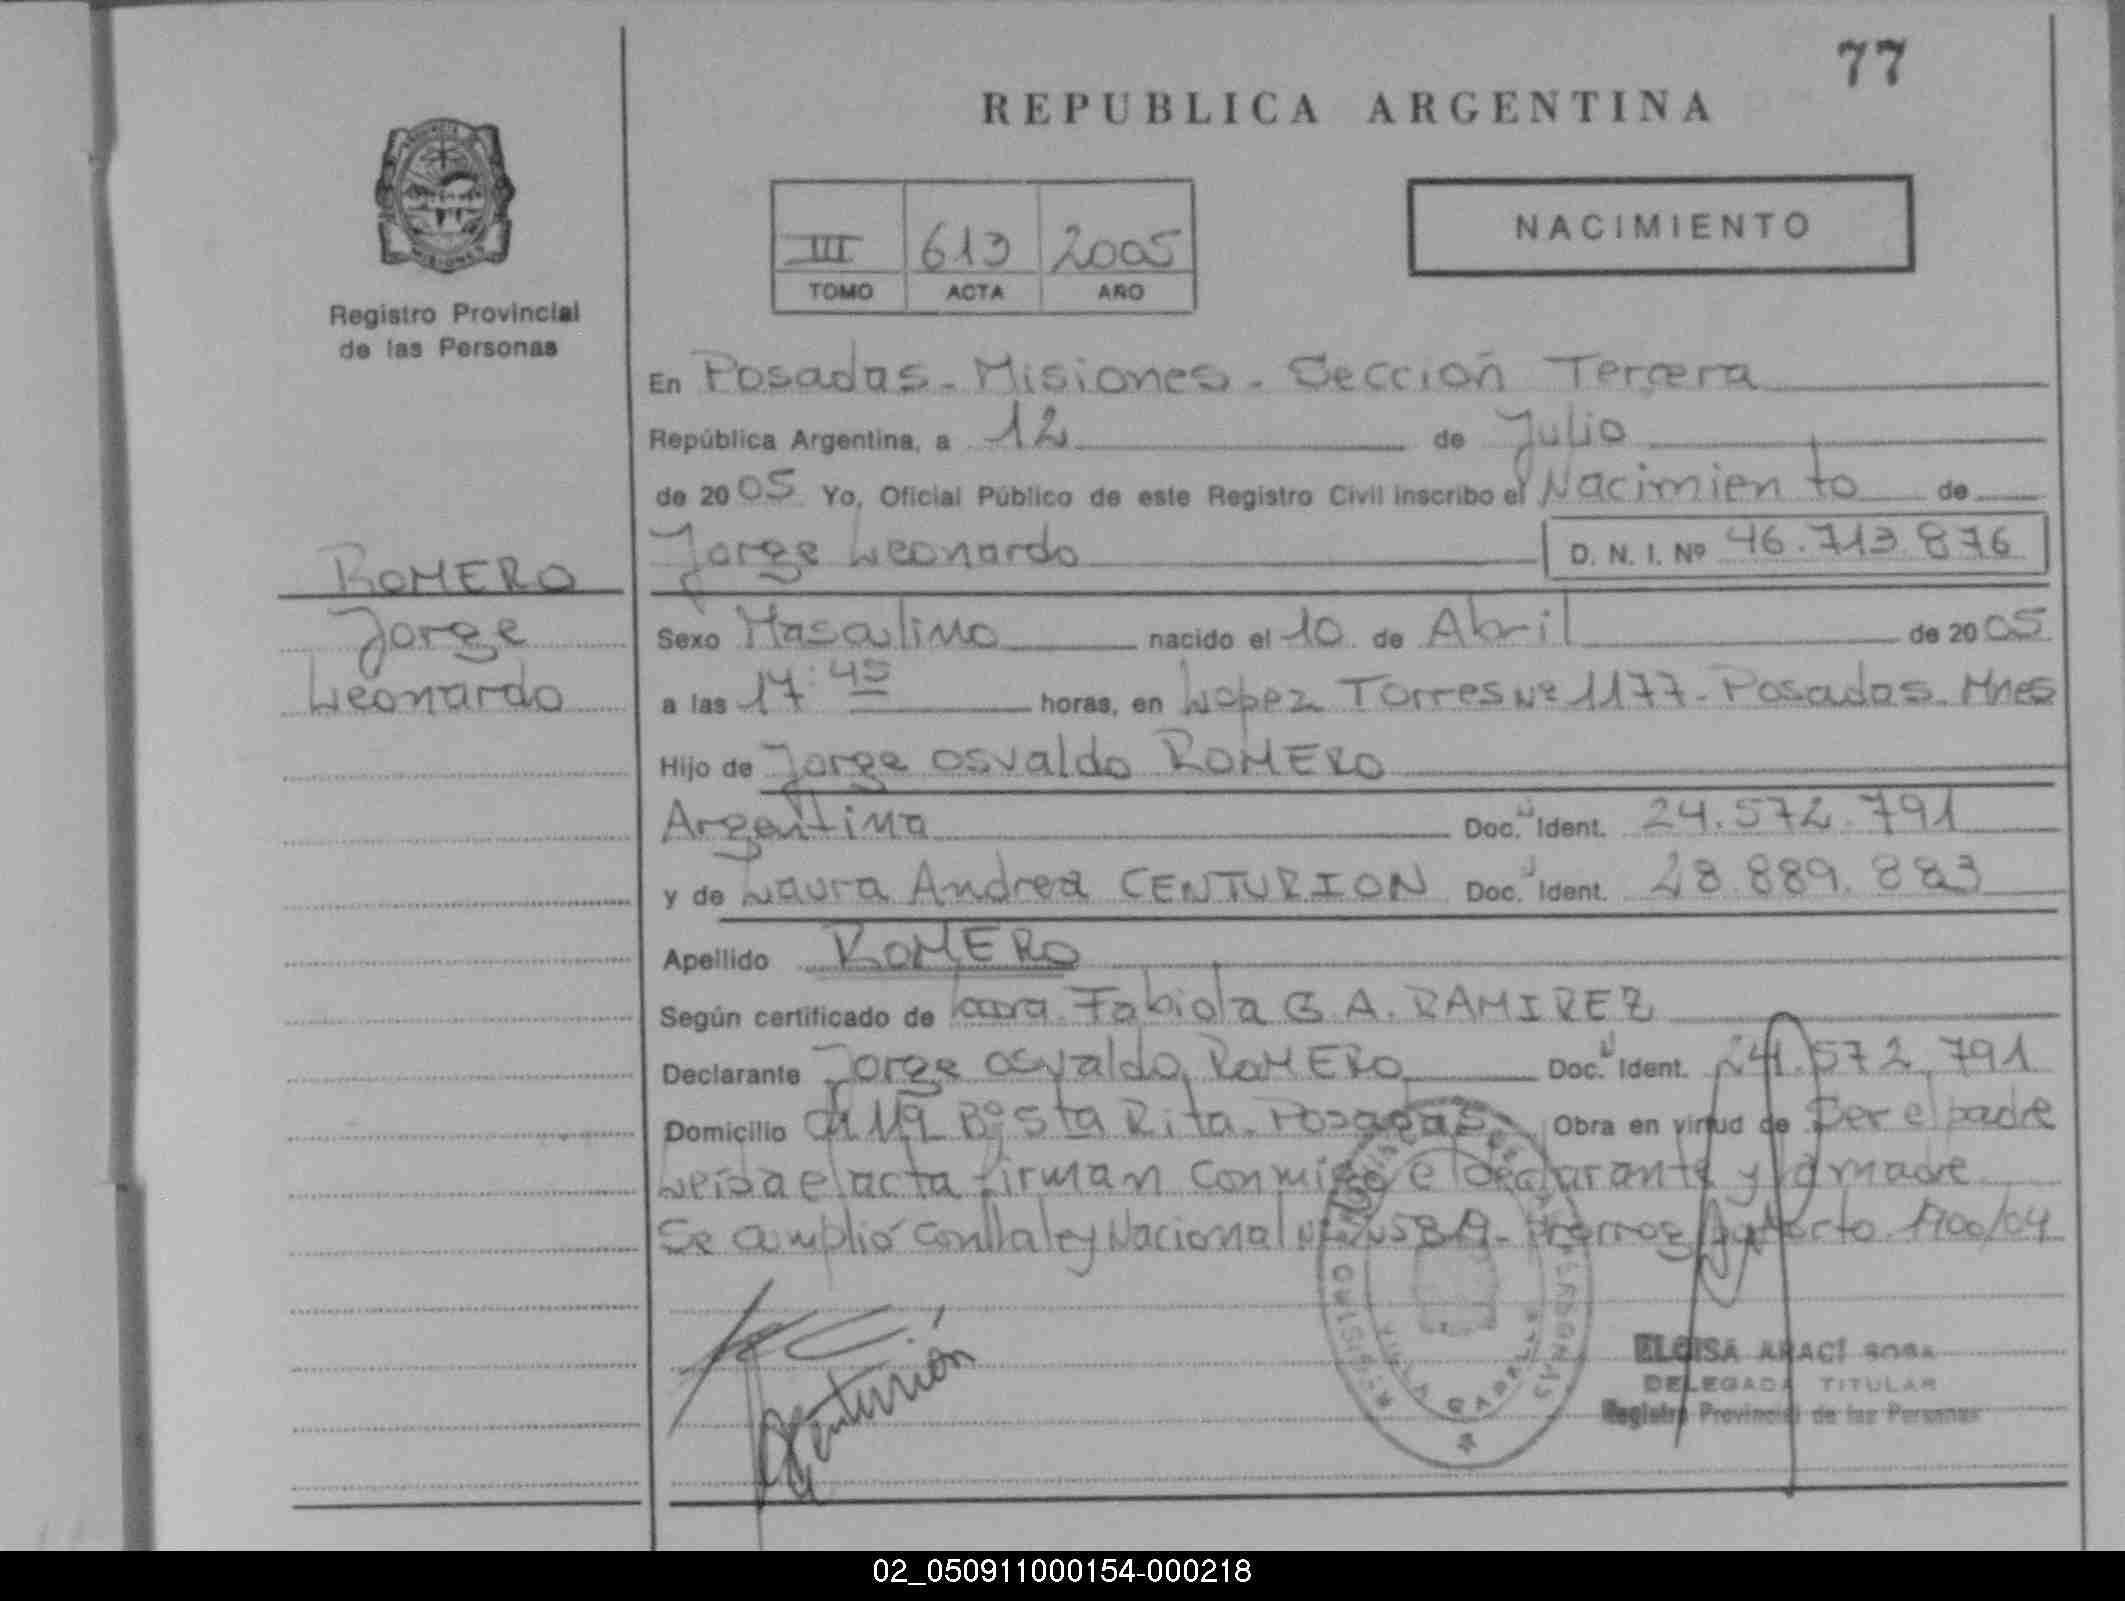 77
REPUBLICA ARGENTINA
III 613 2005
TOMO ACTA AÑO
NACIMIENTO
Registro Provincial
de las Personas
ROMERO
Jorge
Leonardo
En Posadas - Misiones - Sección Tercera
República Argentina, a 12 de Julio
de 2005 Yo, Oficial Público de este Registro Civil inscribo el Nacimiento de
Jorge Leonardo D. N. I. Nº 46.713.876
Sexo Masculino nacido el 10 de Abril de 2005
a las 17:45 horas, en Lopez Torres Nº 1177 - Posadas - Mnes
Hijo de Jorge Osvaldo ROMERO
Argentina Doc. Ident. 24.572.791
y de Laura Andrea CENTURION Doc. Ident. 28.889.883
Apellido ROMERO
Según certificado de Fabiola G. A. RAMIREZ
Declarante Jorge Osvaldo ROMERO Doc. Ident. 24.572.791
Domicilio 119 Bº Sta Rita - Posadas Obra en virtud de Ser el padre
Leida el acta firman conmigo el declarante y la madre
Se amplió Con la ley Nacional Decreto 1700/04
Centurión
ELOISA ARACI SOSA
DELEGADA TITULAR
Registro Provincial de las Personas
02_050911000154-000218